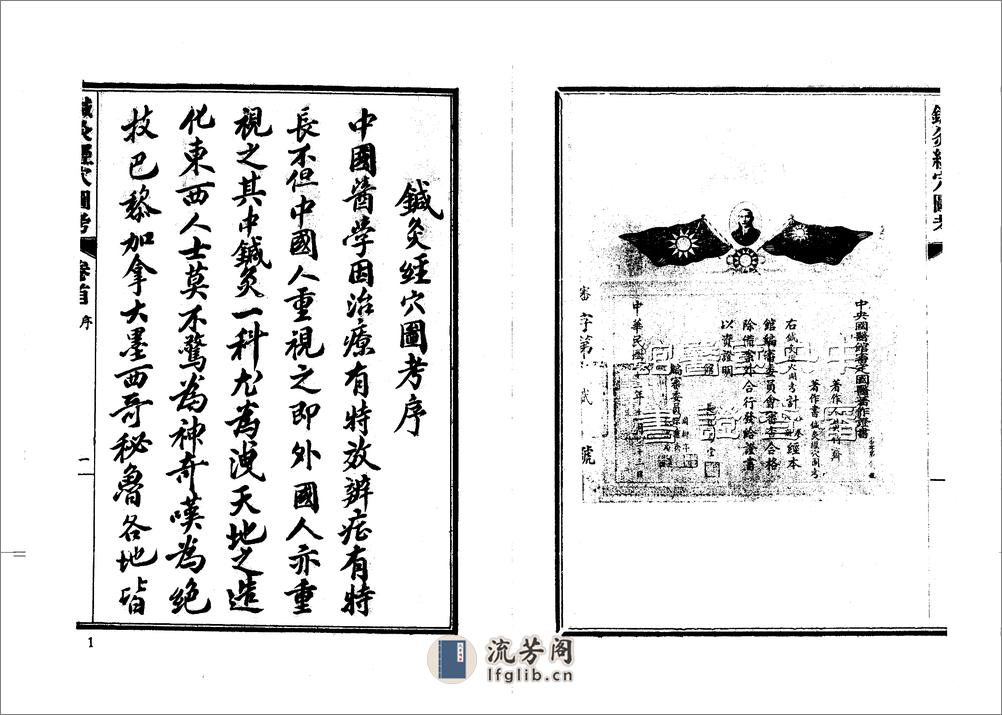 鍼灸經穴圖考
中央國醫館審定國醫著作證書
著作人
著作書 鍼灸經穴圖考
右鍼灸經穴圖考計
經本
館編審委員會審查合格
除備案外合行發給證書
以資證明
館長
編審委員
中華民國
審字第
貳
號
鍼灸經穴圖考序
中國醫學因治療有特效辨症有特
長不但中國人重視之即外國人亦重
視之其中鍼灸一科尤為洩天地之造
化東西人士莫不驚為神奇嘆為絕
技巴黎加拿大墨西哥秘魯各地皆
鍼灸經穴圖考
卷首
序
一
1
流芳阁
lfglib.cn